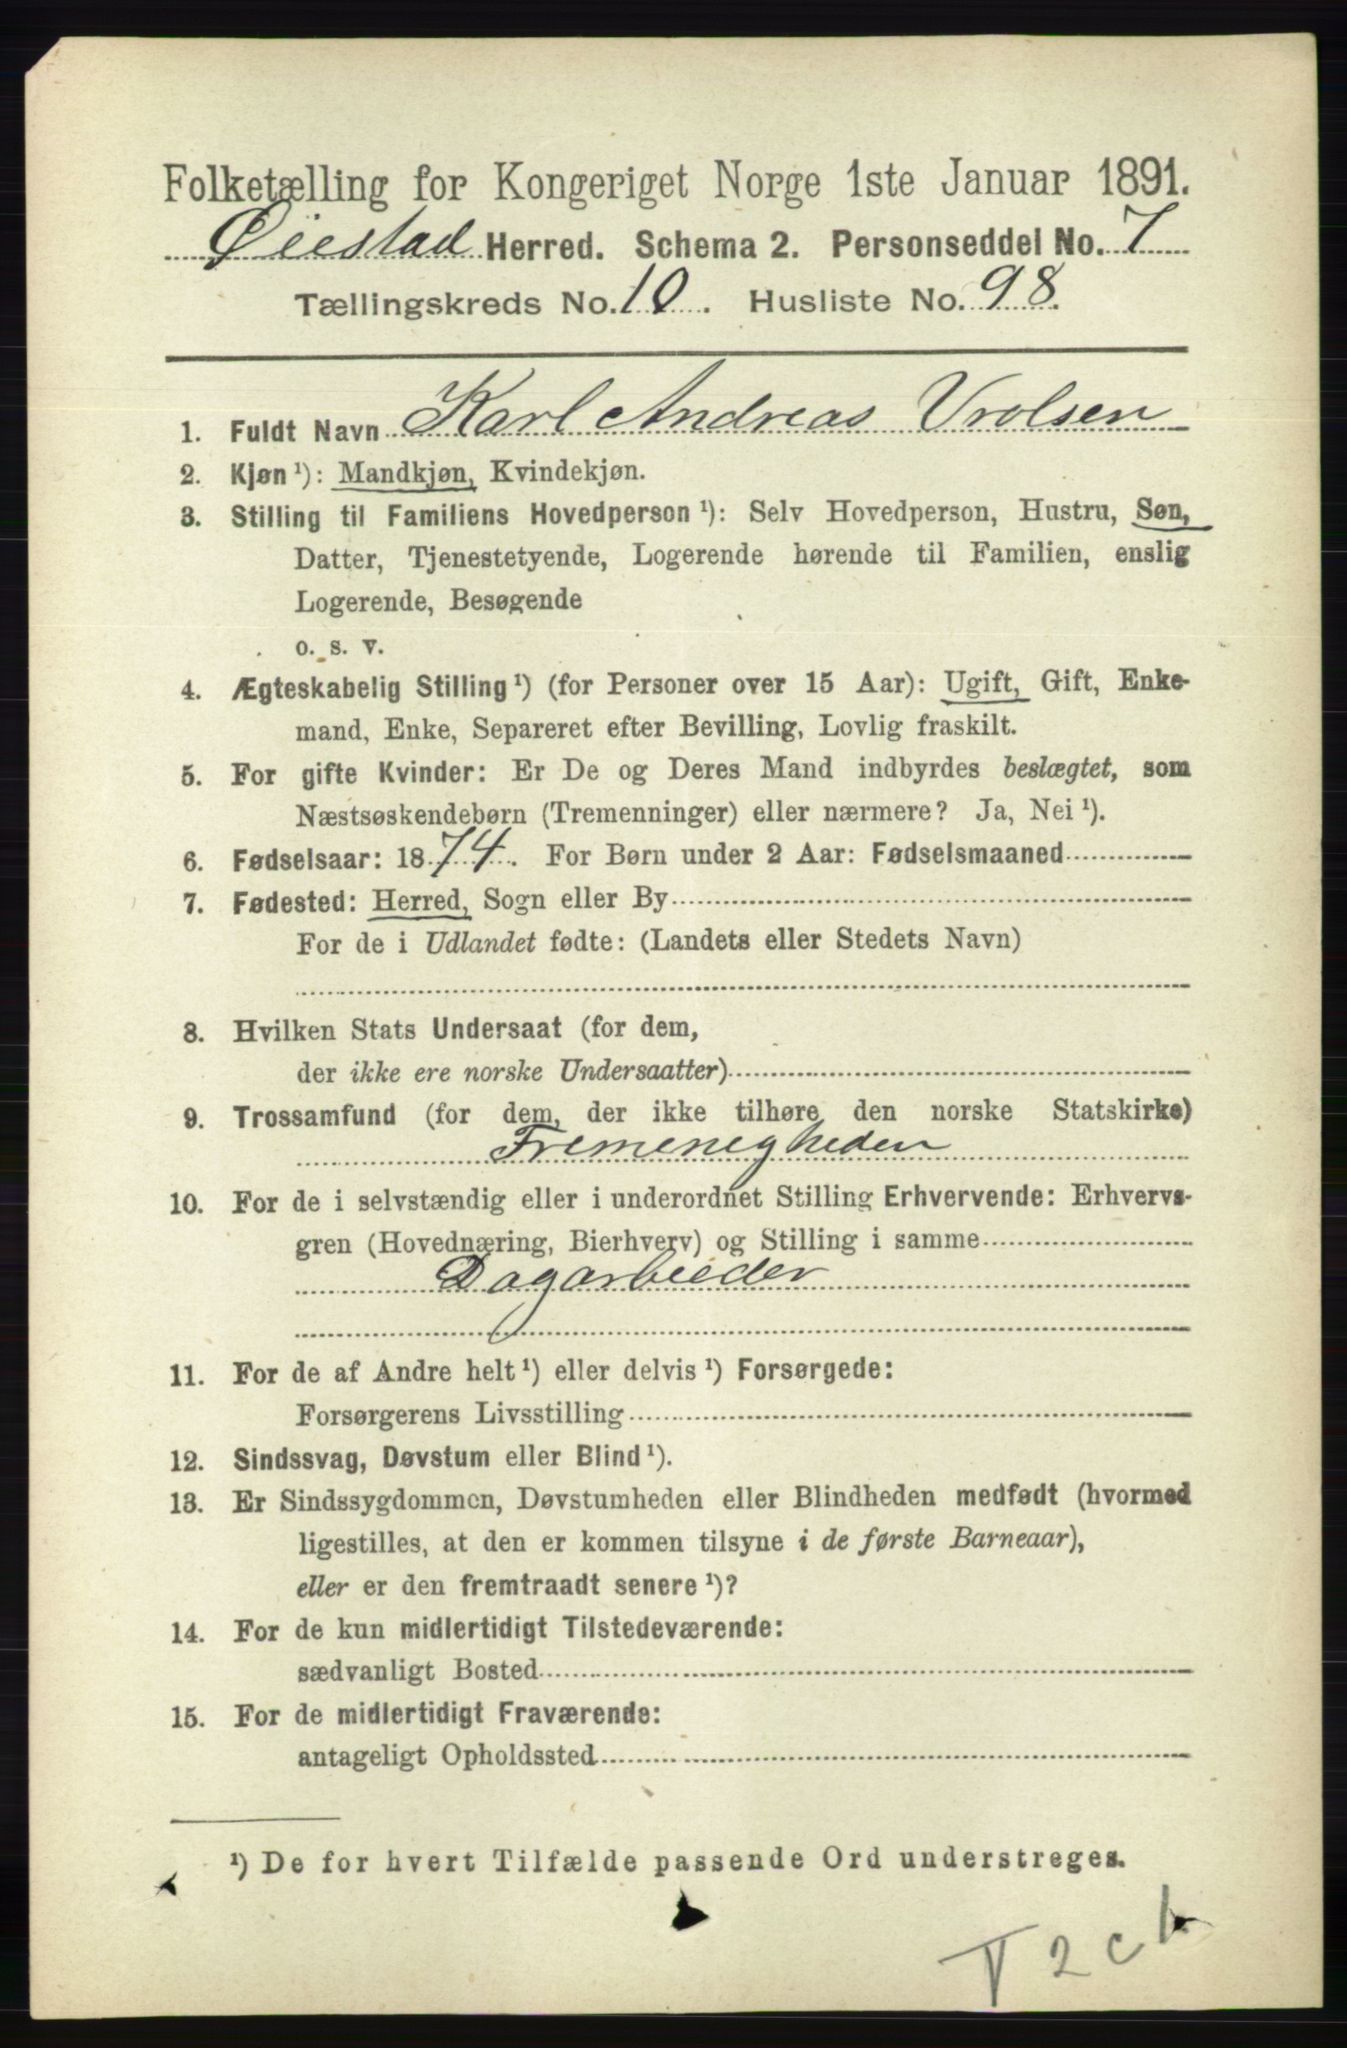 Folketælling for Kongeriget Norge 1ste Januar 1891.
Øiestad Herred. Schema 2. Personseddel No. 7
Tællingskreds No. 10. Husliste No. 98.
1. Fuldt Navn Karl Andreas Vrolsen
2. Kjøn ¹): Mandkjøn, Kvindekjøn.
3. Stilling til Familiens Hovedperson ¹): Selv Hovedperson, Hustru, Søn,
Datter, Tjenestetyende, Logerende hørende til Familien, enslig
Logerende, Besøgende
o. s. v.
4. Ægteskabelig Stilling ¹) (for Personer over 15 Aar): Ugift, Gift, Enke-
mand, Enke, Separeret efter Bevilling, Lovlig fraskilt.
5. For gifte Kvinder: Er De og Deres Mand indbyrdes beslægtet, som
Næstsøskendebørn (Tremenninger) eller nærmere? Ja, Nei ¹).
6. Fødselsaar: 1874. For Børn under 2 Aar: Fødselsmaaned
7. Fødested: Herred, Sogn eller By
For de i Udlandet fødte: (Landets eller Stedets Navn)
8. Hvilken Stats Undersaat (for dem,
der ikke ere norske Undersaatter)
9. Trossamfund (for dem, der ikke tilhøre den norske Statskirke)
Fremenigheden
10. For de i selvstændig eller i underordnet Stilling Erhvervende: Erhvervs-
gren (Hovednæring, Bierhverv) og Stilling i samme
Dagarbeider
11. For de af Andre helt ¹) eller delvis ¹) Forsørgede:
Forsørgerens Livsstilling
12. Sindssvag, Døvstum eller Blind ¹).
13. Er Sindssygdommen, Døvstumheden eller Blindheden medfødt (hvormed
ligestilles, at den er kommen tilsyne i de første Barneaar),
eller er den fremtraadt senere ¹)?
14. For de kun midlertidigt Tilstedeværende:
sædvanligt Bosted
15. For de midlertidigt Fraværende:
antageligt Opholdssted
¹) De for hvert Tilfælde passende Ord understreges.